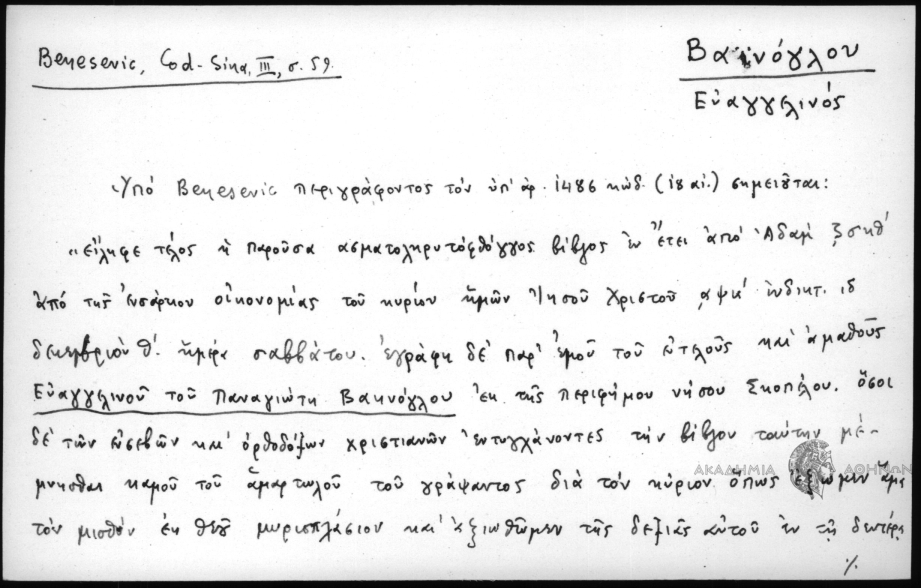 Benesevic, Cod-Sina, III, σ. 59.
Βαϊνόγλου
Εὐαγγελινός
Ὑπό Benesevic περιγράφοντος τὸν ὑπ' ἀρ. 1486 κώδ. (18 αἰ.) σημειοῦται:
"εἴληφε τέλος ἡ παροῦσα ασματολιρυτόφθογγος βίβλος ἐν ἔτει ἀπό Ἀδάμ ζσκθ'
ἀπό τῆς ἐνσάρκου οἰκονομίας τοῦ κυρίου ἡμῶν Ἰησοῦ Χριστοῦ ͵αψκ' ἰνδικτ. ιδ
δεκεμβρίου θ'. ἡμέρᾳ σαββάτου. ἐγράφη δέ παρ' ἐμοῦ τοῦ εὐτελοῦς καί ἀμαθοῦς
Εὐαγγελινοῦ τοῦ Παναγιώτη Βαηνόγλου ἐκ τῆς περιφήμου νήσου Σκοπέλου. ὅσοι
δέ τῶν εὐσεβῶν καί ὀρθοδόξων χριστιανῶν ἐντυγχάνοντες τήν βίβλον ταύτην μέ-
μνησθαι καμοῦ τοῦ ἁμαρτωλοῦ τοῦ γράψαντος διά τόν κύριον ὅπως ἕξωμεν
τόν μισθόν ἐκ θεοῦ μυριοπλάσιον καί ἀξιωθῶμεν τῆς δεξιᾶς αὐτοῦ ἐν τῇ δευτέρᾳ
./.
ΑΚΑΔΗΜΙΑ ΑΘΗΝΩΝ